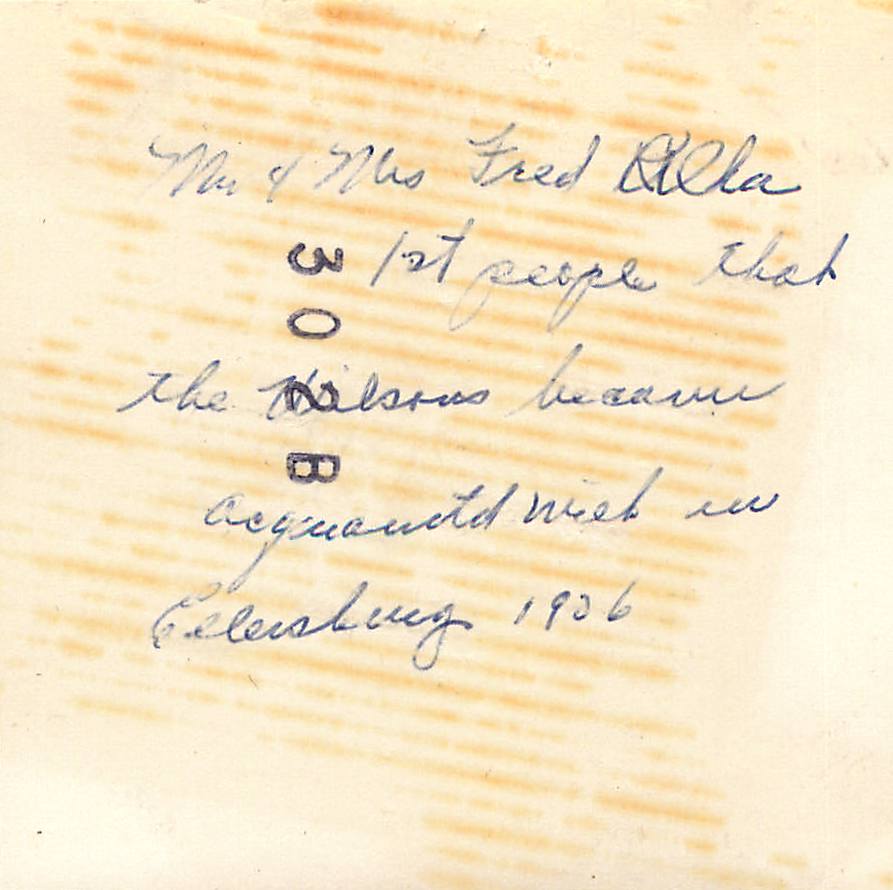 Mr & Mrs Fred
1st people that
the Wilsons became
acquaintd with in
Petersburg 1926
302B